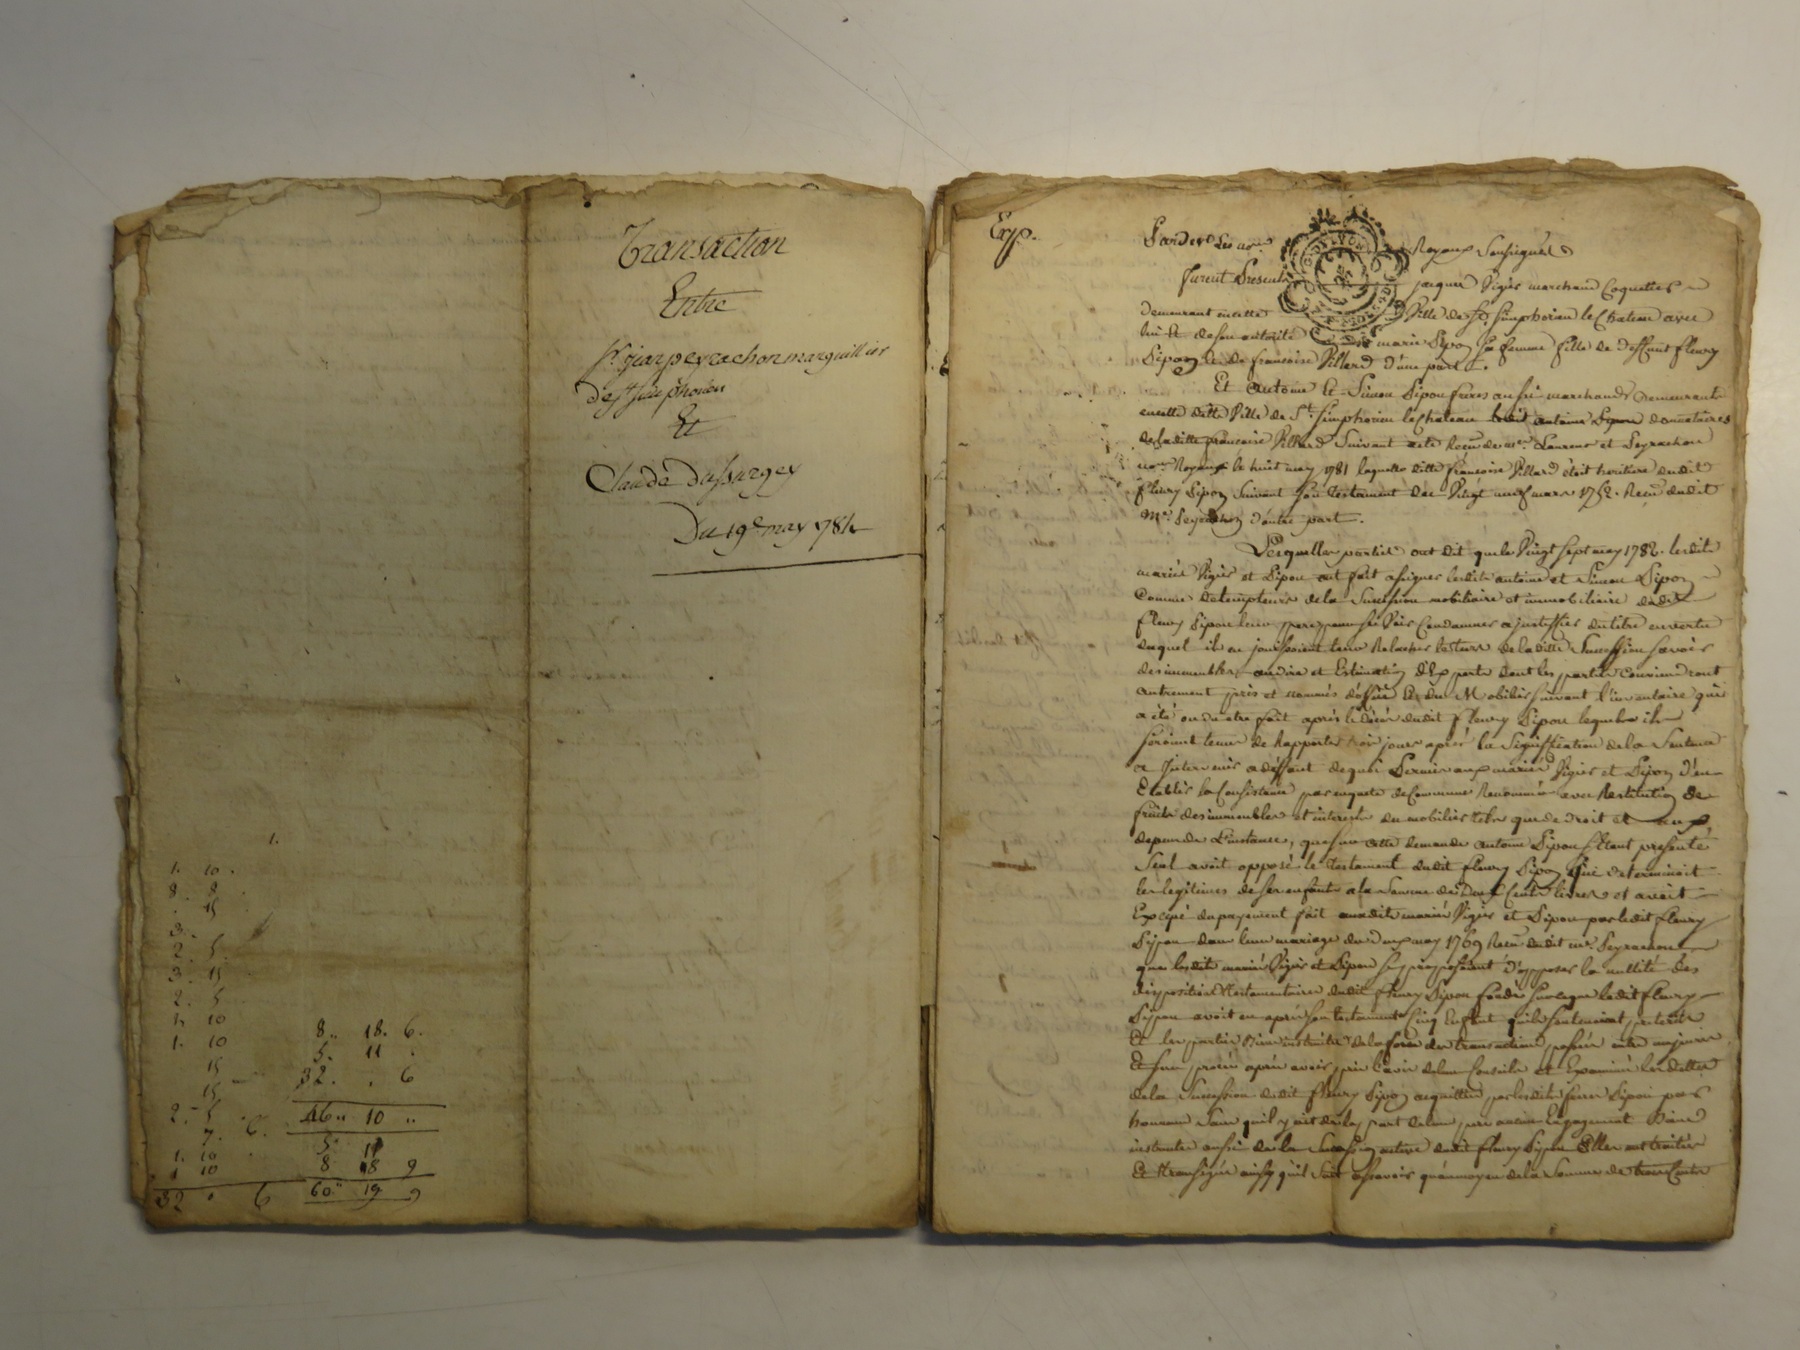 Transaction
Entre
Sr. jean peyrachon marguillier
de st. simphorien
Et
Claude Dussurgey
Du 19e. may 1784
1.
1. 10.
8. 8
15
3.
2. 5.
3. 15
2. 5
1. 10
1. 10
15
15
2. 5
7. 6.
1. 10
1 10
32 . 6
8.. 18. 6.
5. 11 .
32. . 6
46.. 10 ..
5. 11
8 18 9
60.. 19 9
Exp.
Pardevt. Les nores. Royaux Soussignés
furent Presents jacques Vigier marchand Coquetier
demeurant en cette Ville de St. Simphorien le Chateau avec
lui Et de son autorité marie Sipon sa femme fille de deffunt fleury
Sipon Et de francoise Villard d'une part.
Et antoine Et Simon Sipon freres aussi marchands demeurants
en cette ditte Ville de St. Simphorien le Chateau ledit antoine Sipon donnataires
de laditte francoise Villard Suivant acte Recu de mes. Laurent et Peyrachon
nores Royaux le huit may 1781 laquelle ditte francoise Villard étoit heritiere dudit
fleury Sipon Suivant son testament du Vingt neuf mars 1752. Recu dudit
Me. Peyrachon d'autre part.
Lesquelles parties ont dit que le Vingt sept may 1782. lesdits
mariés Vigier et Sipon ont fait assigner lesdits antoine et Simon Sipon
Comme detempteurs de la Succession mobiliaire et immobiliaire dudit
fleury Sipon leur pere pour se Voir Condamner a justiffier du titre en vertu
duquel ils en jouissoient leur Relacher le tiers de laditte Succession savoir
des immeubles, au dire et Estimation d'Experts dont les parties Conviendront
autrement pris et nommés d'office Et du Mobilier suivant l'inventaire qui
a été ou du etre fait après le décès dudit fleury Sipon lequel ils
seroient tenus de Rapporter trois jours après la Signiffication de la Sentence
a Intervenir a deffaut de quoi Permis aux mariés Vigier et Sipon d'en
Etablir la Consistance par enquete de Commune Renommée avec Restitution de
fruits des immeubles et interets du mobilier tels que de droit et aux
depens de L'instance, que sur cette demande antoine Sipon S'étant presenté
Seul avoit opposé le testament dudit fleury Sipon qui determinoit
les legitimes de ses enfants a la Somme de Cents livres et avoit
Excipé du payement fait auxdits mariés Vigier et Sipon par ledit fleury
Sipon dans leur mariage du may 1769 Recu dudit me. Peyrachon
que lesdits mariés Vigier et Sipon se proposoient d'opposer la nullité des
dispositions testamentaires dudit fleury Sipon fondés sur ce que ledit fleury
Sipon avoit eu après son testament Cinq Enfant qu'ils soutenoient preterits
Et les parties Bien instruites de la force des transactions passées entre majeurs
Et sur procès après avoir pris l'avis de leur Conseils et Examiné les dettes
de la Succession dudit fleury Sipon acquittées par lesdits freres Sipon
de la part de leur pere aucun Bien
instruites aussi de la Succession active dudit fleury Sipon Elles ont traités
Et transigés ainsy qu'il Suit assavoir qu'au moyen de la Somme de trois Cents